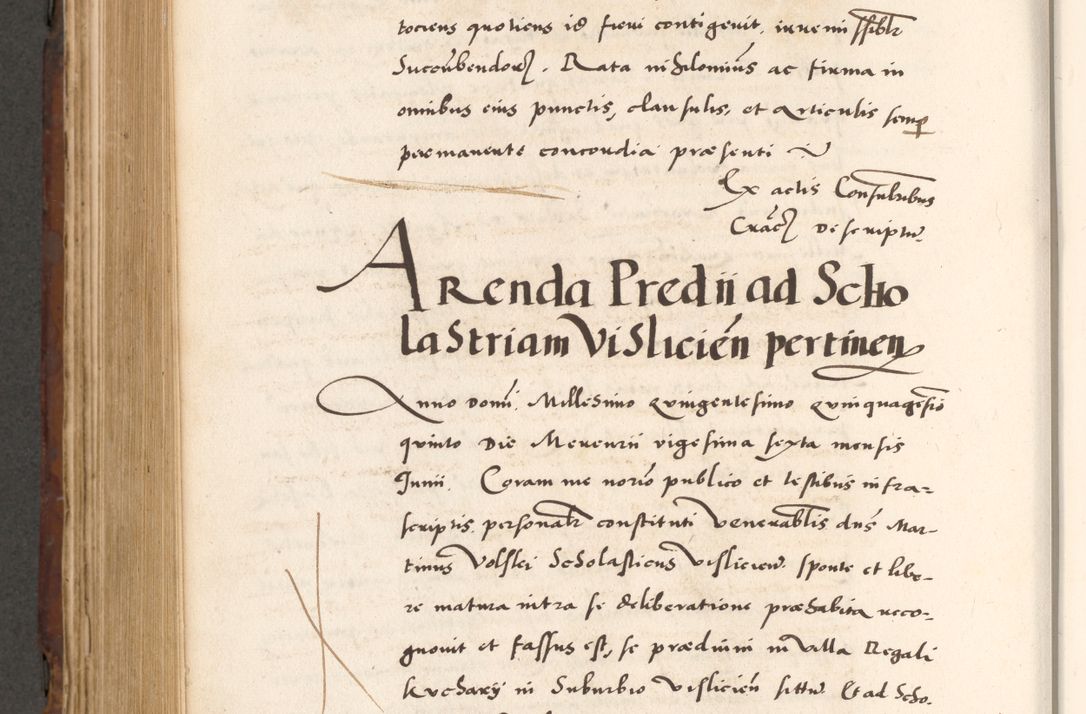 tociens quotiens id fieri contigerit, invemi ssiblr
Succubendorum. Rata nihilominus ac firma in
omnibus eius punctis, clausulis, et articulis semper
permanente concordia præsenti
Ex actis Consularibus
Crac descriptum.
Arenda Predii ad Scho
lastriam Vislicień pertinen
Anno domi. Millesimo quingentesimo quinquagesio
quinto Die Mercurii vigesima sexta mensis
Junii. Coram me norio publico et testibus infra-
scriptis personalr constituti Venerablis dns Mar-
tinus Volski Scholasticus vislicien. sponte et libe-
re matura intra se deliberatione præhabita reco-
gnovit et fassus est, se prædium in villa Regali
Kuchary in Suburbio vislicień sittu. Et ad Scho.